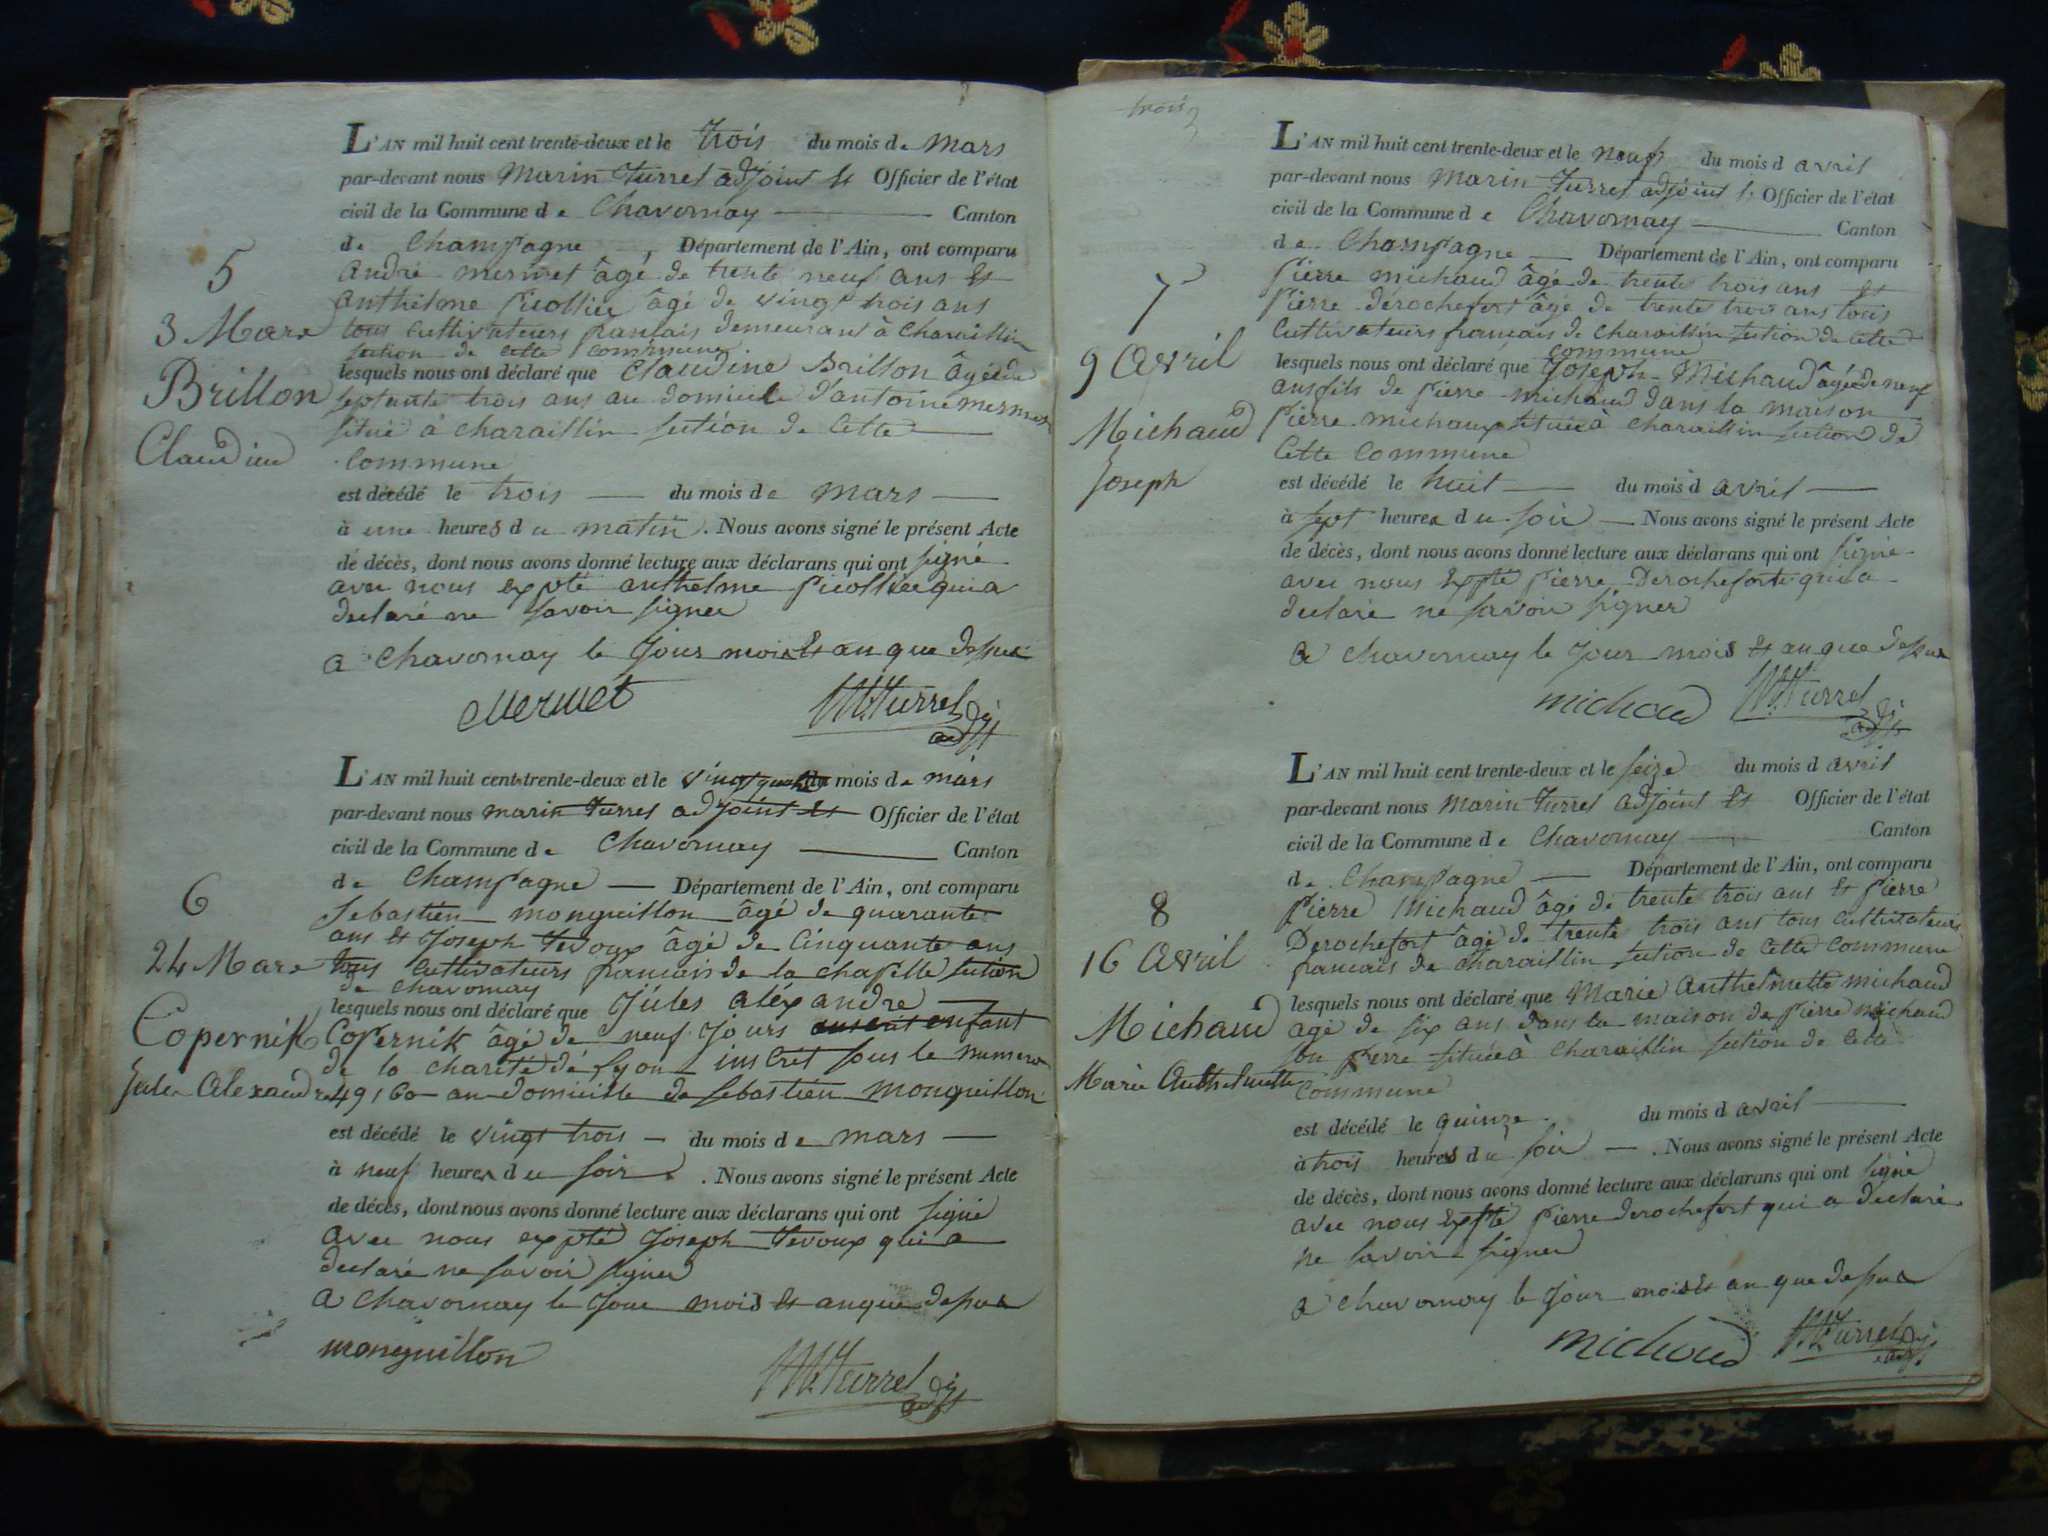 5
3 Mars
Brillon
Claudine
L'AN mil huit cent trente-deux et le trois du mois de mars
par-devant nous Marin Turrel adjoint et Officier de l'état
civil de la Commune de Chavornay Canton
de Champagne, Département de l'Ain, ont comparu
andré mermet âgé de trente neuf ans et
anthelme picollier âgé de vingt trois ans
tous cultivateurs français demeurant à charaillin
section de cette commune
lesquels nous ont déclaré que Claudine Brillon âgée de
septante trois ans au domicile d'antoine mermet
situé à charaillin section de cette
commune
est décédé le trois du mois de mars
à une heures du matin. Nous avons signé le présent Acte
de décès, dont nous avons donné lecture aux déclarans qui ont signé
avec nous expté anthelme picollier qui a
declaré ne savoir signer
a chavornay le jour mois et an que dessus
Mermet Mn Turrel adjt
6
24 Mars
Copernik
Jules Alexandre
L'AN mil huit cent trente-deux et le vingt quatre du mois de mars
par-devant nous marin turrel adjoint et Officier de l'état
civil de la Commune de Chavornay Canton
de Champagne Département de l'Ain, ont comparu
Sebastien monguillon âgé de quarante
ans et Joseph tevoux âgé de cinquante ans
tous cultivateurs francais de la chapelle section
de chavornay
lesquels nous ont déclaré que Jules aléxandre
Copernik âgé de neuf jours enfant
de la charité de Lyon inscrit sous le numero
49160 au domicille de sebastien monguillon
est décédé le vingt trois du mois de mars
à neuf heures du soir. Nous avons signé le présent Acte
de décès, dont nous avons donné lecture aux déclarans qui ont signé
avec nous expté Joseph tevoux qui a
declaré ne savoir signer
a chavornay le jour mois et an que dessus
monguillon Mn Turrel adjt
trois
3
7
9 Avril
Michaud
Joseph
L'AN mil huit cent trente-deux et le neuf du mois d avril
par-devant nous marin turrel adjoint et Officier de l'état
civil de la Commune de Chavornay Canton
de Champagne Département de l'Ain, ont comparu
pierre michaud âgé de trente trois ans et
pierre derochefort âgé de trente trois ans tous
cultivateurs francais de charaillin section de cette
commune
lesquels nous ont déclaré que Joseph Michaud âgé de neuf
ans fils de pierre michaud dans la maison
pierre michaux située à charaillin section de
Cette Commune
est décédé le huit du mois d avril
à sept heures du soir Nous avons signé le présent Acte
de décès, dont nous avons donné lecture aux déclarans qui ont signé
avec nous expté pierre Derochefort qui a
declaré ne savoir signer
a chavornay le jour mois et an que dessus
michaud Mn Turrel adjt
8
16 Avril
Michaud
Marie Anthelmette
L'AN mil huit cent trente-deux et le seize du mois d avril
par-devant nous Marin turrel adjoint et Officier de l'état
civil de la Commune de Chavornay Canton
de Champagne Département de l'Ain, ont comparu
pierre Michaud âgé de trente trois ans et pierre
Derochefort âgé de trente trois ans tous cultivateurs
francais de charaillin section de cette commune
lesquels nous ont déclaré que Marie Anthelmette michaud
agé de six ans dans la maison de pierre michaud
son pierre située à charaillin section de cette
Commune
est décédé le quinze du mois d avril
à trois heures du soir. Nous avons signé le présent Acte
de décès, dont nous avons donné lecture aux déclarans qui ont signé
avec nous expté pierre derochefort qui a declaré
ne savoir signer
a chavornay le jour mois et an que dessus
michaud Mn Turrel adjt